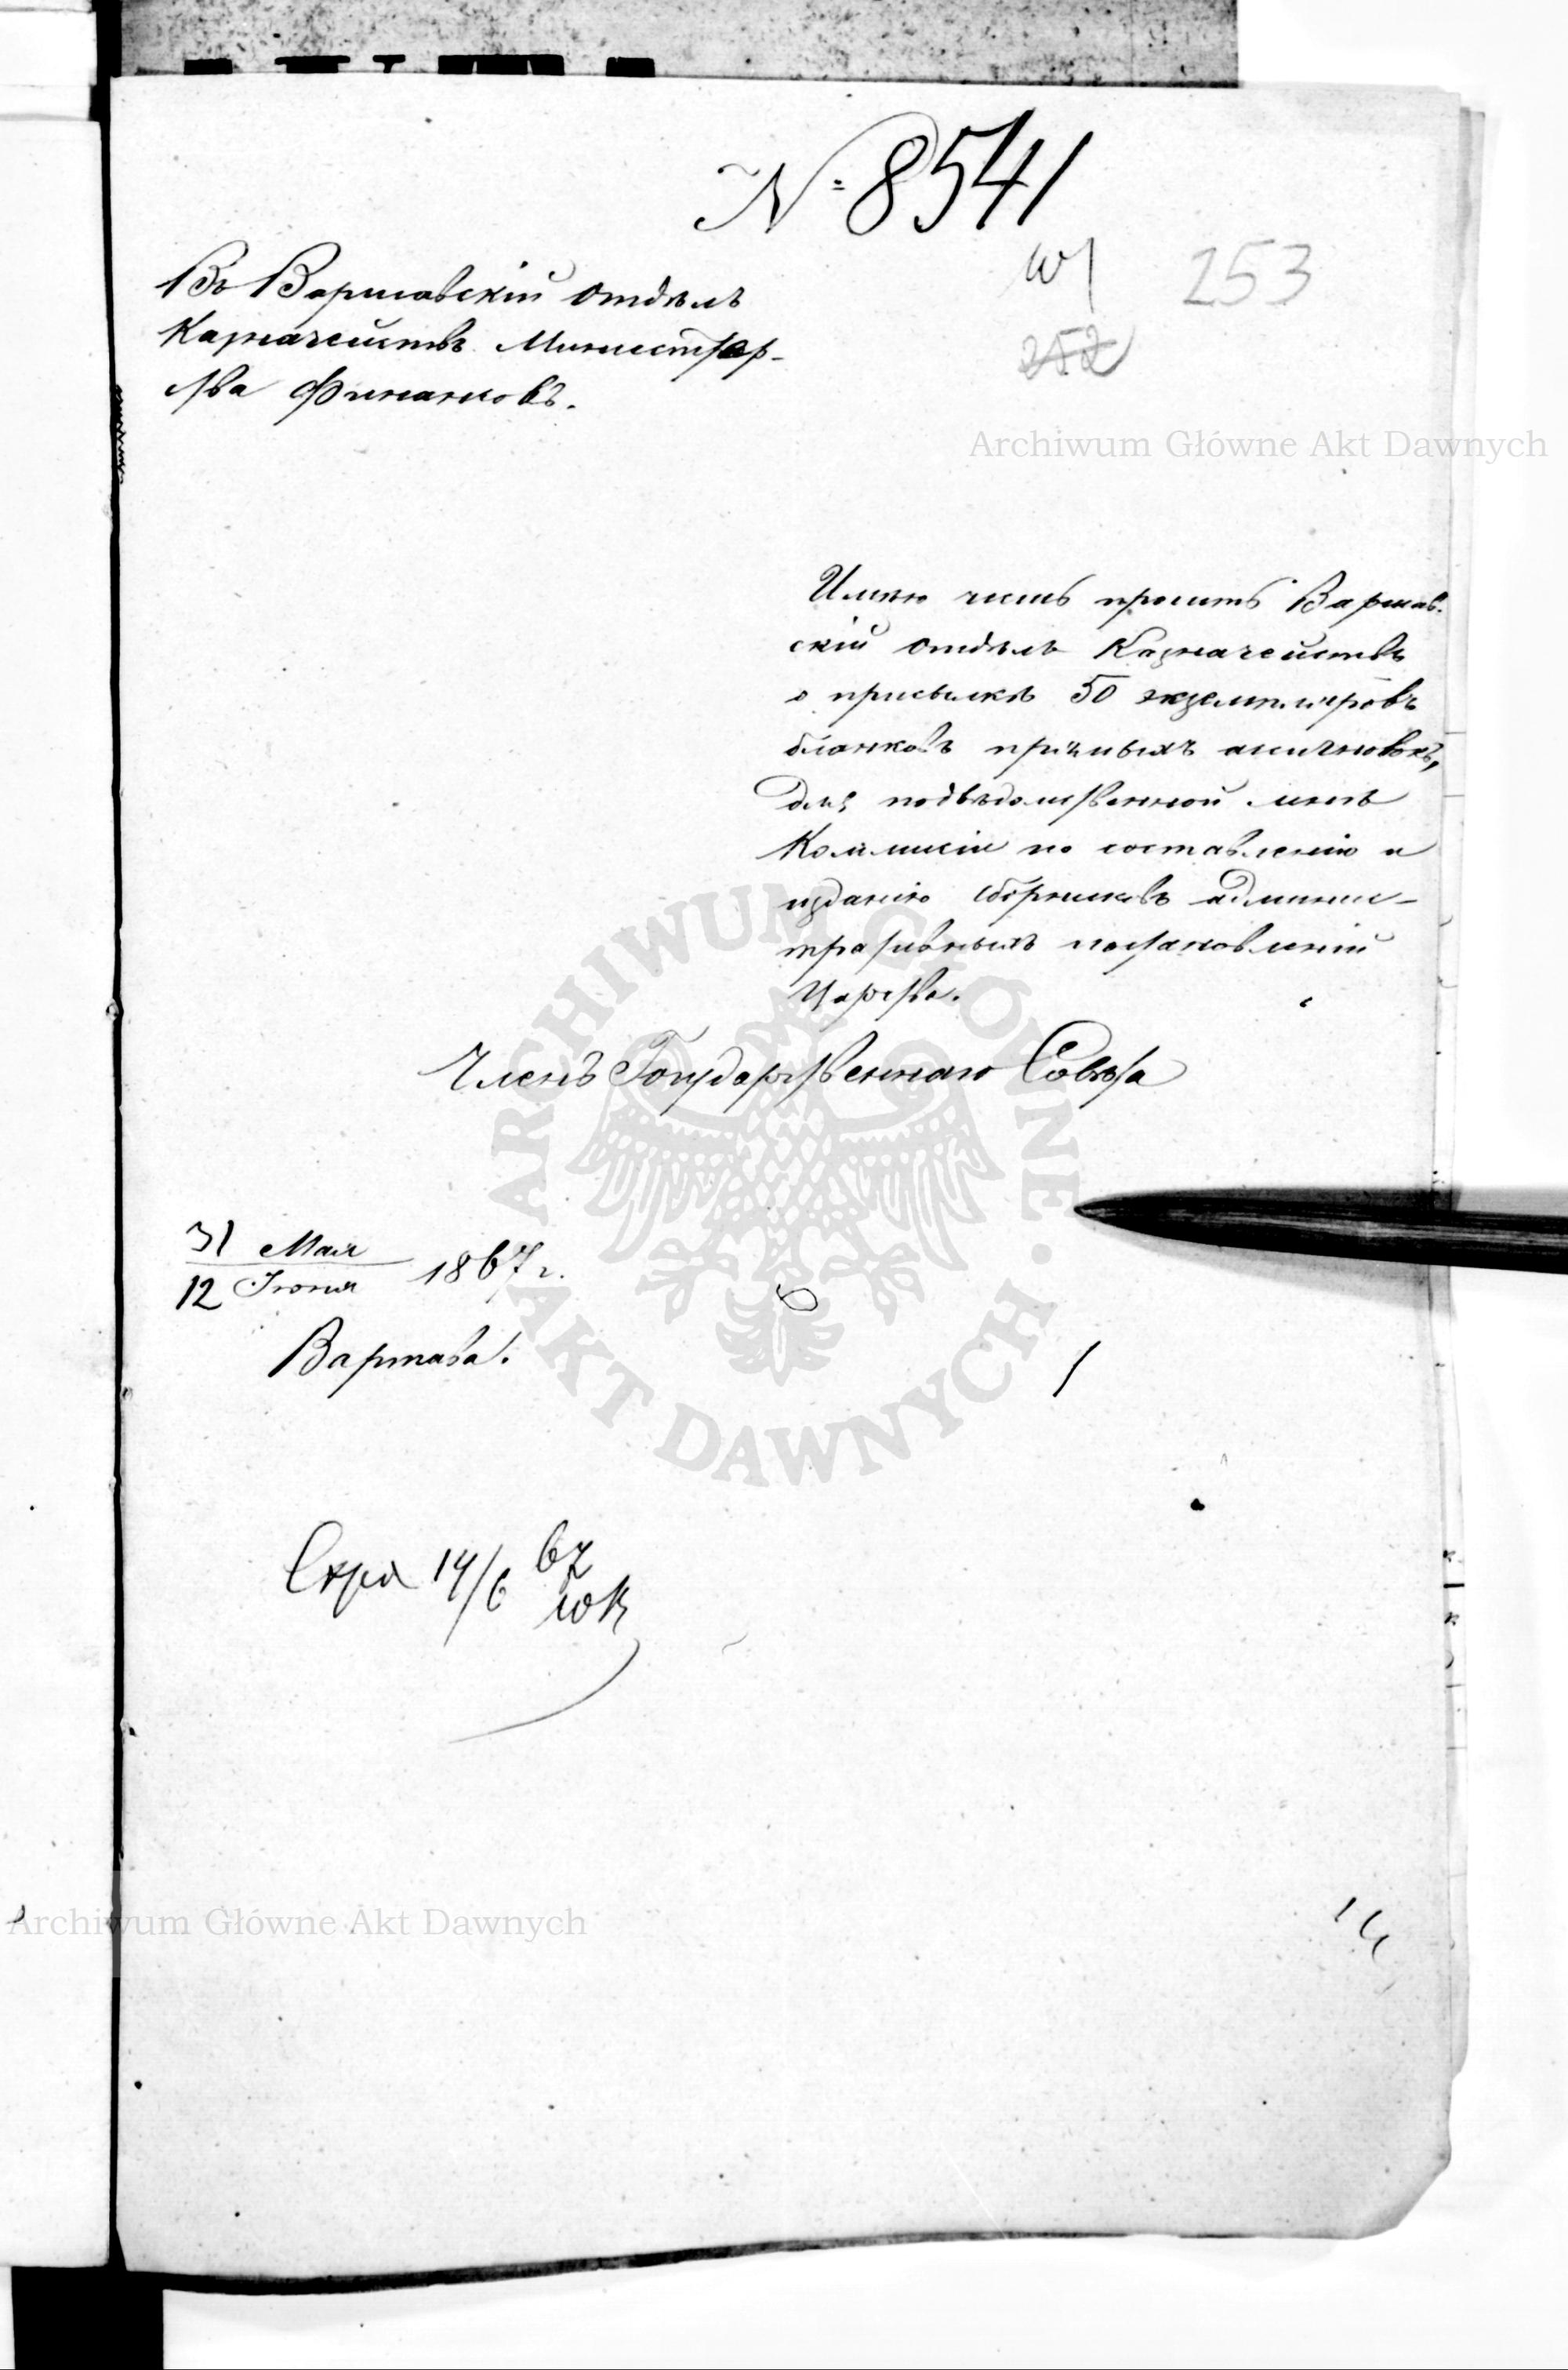 № 8541
253
252
Въ Варшавскій Отдѣлъ
Казначействъ Министер-
ства Финансовъ.
Archiwum Główne Akt Dawnych
Имѣю честь просить Варшав-
скій Отдѣлъ Казначействъ
о присылкѣ 50 экземпляровъ
бланковъ ассигновокъ,
для подвѣдомственной мнѣ
Коммисіи по составленію и
изданію сборниковъ админис-
тративныхъ постановленій
Царства.
Членъ Государственнаго Совѣта
31 Мая
12 Іюня 1867 г.
Варшава.
14/6 67
ARCHIWUM GŁÓWNE AKT DAWNYCH
Archiwum Główne Akt Dawnych